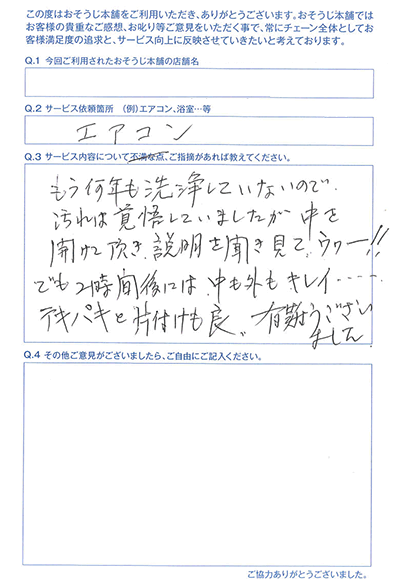 この度はおそうじ本舗をご利用いただき、ありがとうございます。おそうじ本舗では
お客様の貴重なご感想、お叱り等ご意見をいただく事で、常にチェーン全体としてお
客様満足度の追求と、サービス向上に反映させていきたいと考えております。
Q.1 今回ご利用されたおそうじ本舗の店舗名
Q.2 サービス依頼箇所 (例)エアコン、浴室…等
エアコン
Q.3 サービス内容について不満な点、ご指摘があれば教えてください。
もう何年も洗浄していないので、
汚れは覚悟していましたが中を
開けて頂き、説明を聞き見て、ウワー!!
でも2時間後には、中も外もキレイ‥‥‥
テキパキと片付けも良、有難うござい
ました
Q.4 その他ご意見がございましたら、ご自由にご記入ください。
ご協力ありがとうございました。